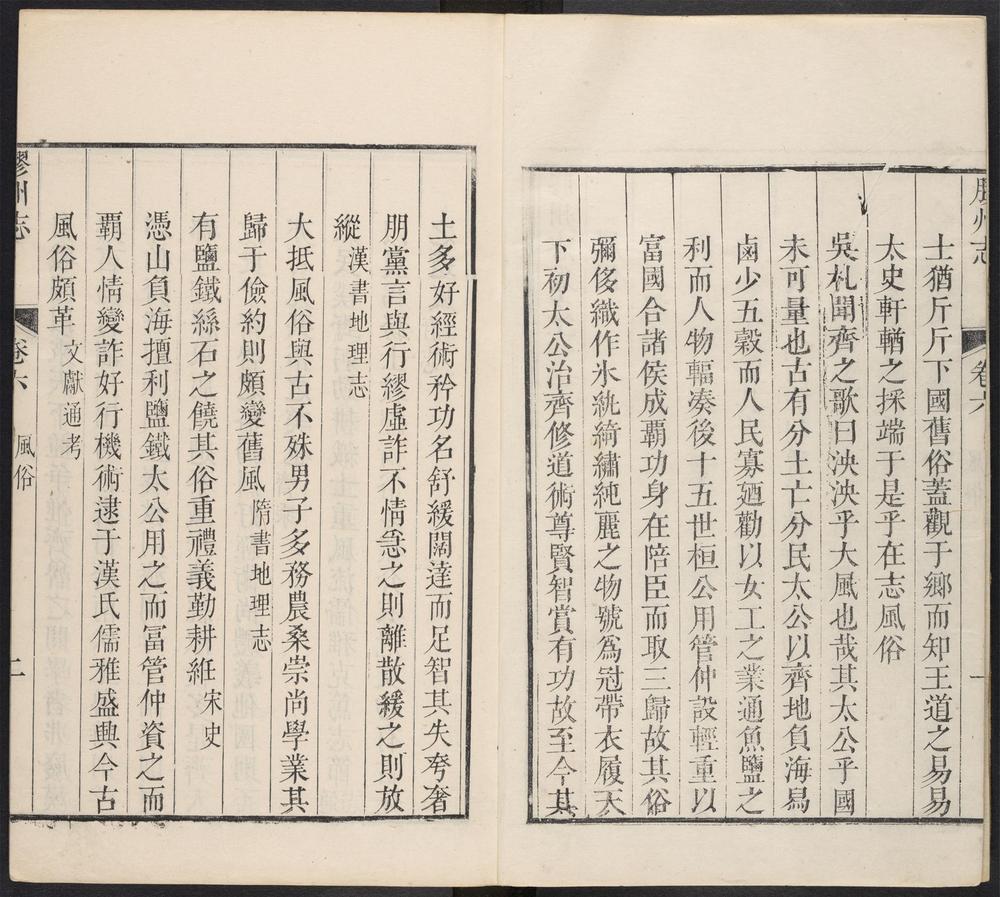 膠州志
卷六
一
士猶斤斤下國舊俗蓋觀于鄉而知王道之易易
太史軒輶之採端于是乎在志風俗
吳札聞齊之歌曰泱泱乎大風也哉其太公乎國
未可量也古有分土亡分民太公以齊地負海舄
鹵少五穀而人民寡廼勸以女工之業通魚鹽之
利而人物輻湊後十五世桓公用管仲設輕重以
富國合諸侯成覇功身在陪臣而取三歸故其俗
彌侈織作氷紈綺繡純麗之物號爲冠帶衣履天
下初太公治齊修道術尊賢智賞有功故至今其
土多好經術矜功名舒緩闊達而足智其失夸奢
朋黨言與行繆虛詐不情急之則離散緩之則放
縱漢書地理志
大抵風俗與古不殊男子多務農桑崇尚學業其
歸于儉約則頗變舊風隋書地理志
有鹽鐵絲石之饒其俗重禮義勤耕絍宋史
憑山負海擅利鹽鐵太公用之而富管仲資之而
覇人情變詐好行機術逮于漢氏儒雅盛興今古
風俗頗革文獻通考
膠州志
卷六
風俗
二